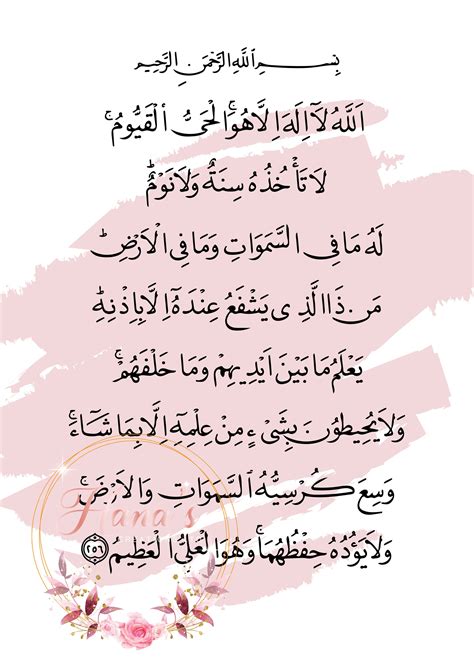 بِسْمِ ٱللَّهِ الرَّحْمَنِ الرَّحِيمِ
اَللَّهُ لَآ اِلَهَ اِلَّا هُوَۚ اَلْحَىُّ الْقَيُّومُۚ
لَا تَأْخُذُهُ سِنَةٌ وَلَا نَوْمٌؕ
لَهُ مَا فِى السَّمَوَاتِ وَمَا فِى الْاَرْضِؕ
مَنْ ذَا الَّذِى يَشْفَعُ عِنْدَهُٓ اِلَّا بِاِذْنِهِؕ
يَعْلَمُ مَا بَيْنَ اَيْدِيهِمْ وَمَا خَلْفَهُمْۚ
وَلَا يُحِيطُونَ بِشَىْءٍ مِنْ عِلْمِهِٓ اِلَّا بِمَا شَآءَۚ
وَسِعَ كُرْسِيُّهُ السَّمَوَاتِ وَالْاَرْضَۚ
Hana's
وَلَا يَؤُدُهُ حِفْظُهُمَاۚ وَهُوَ الْعَلِىُّ الْعَظِيمُ ٢٥٦